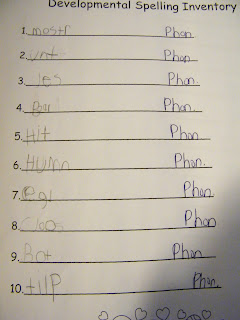 Developmental Spelling Inventory
1. mostr Phon.
2. unt Phon.
3. les Phon.
4. Phon.
5. Hit Phon
6. Humn Phon.
7. egl Phon.
8. Phon
9. Bot Phon.
10. tllP Phon.